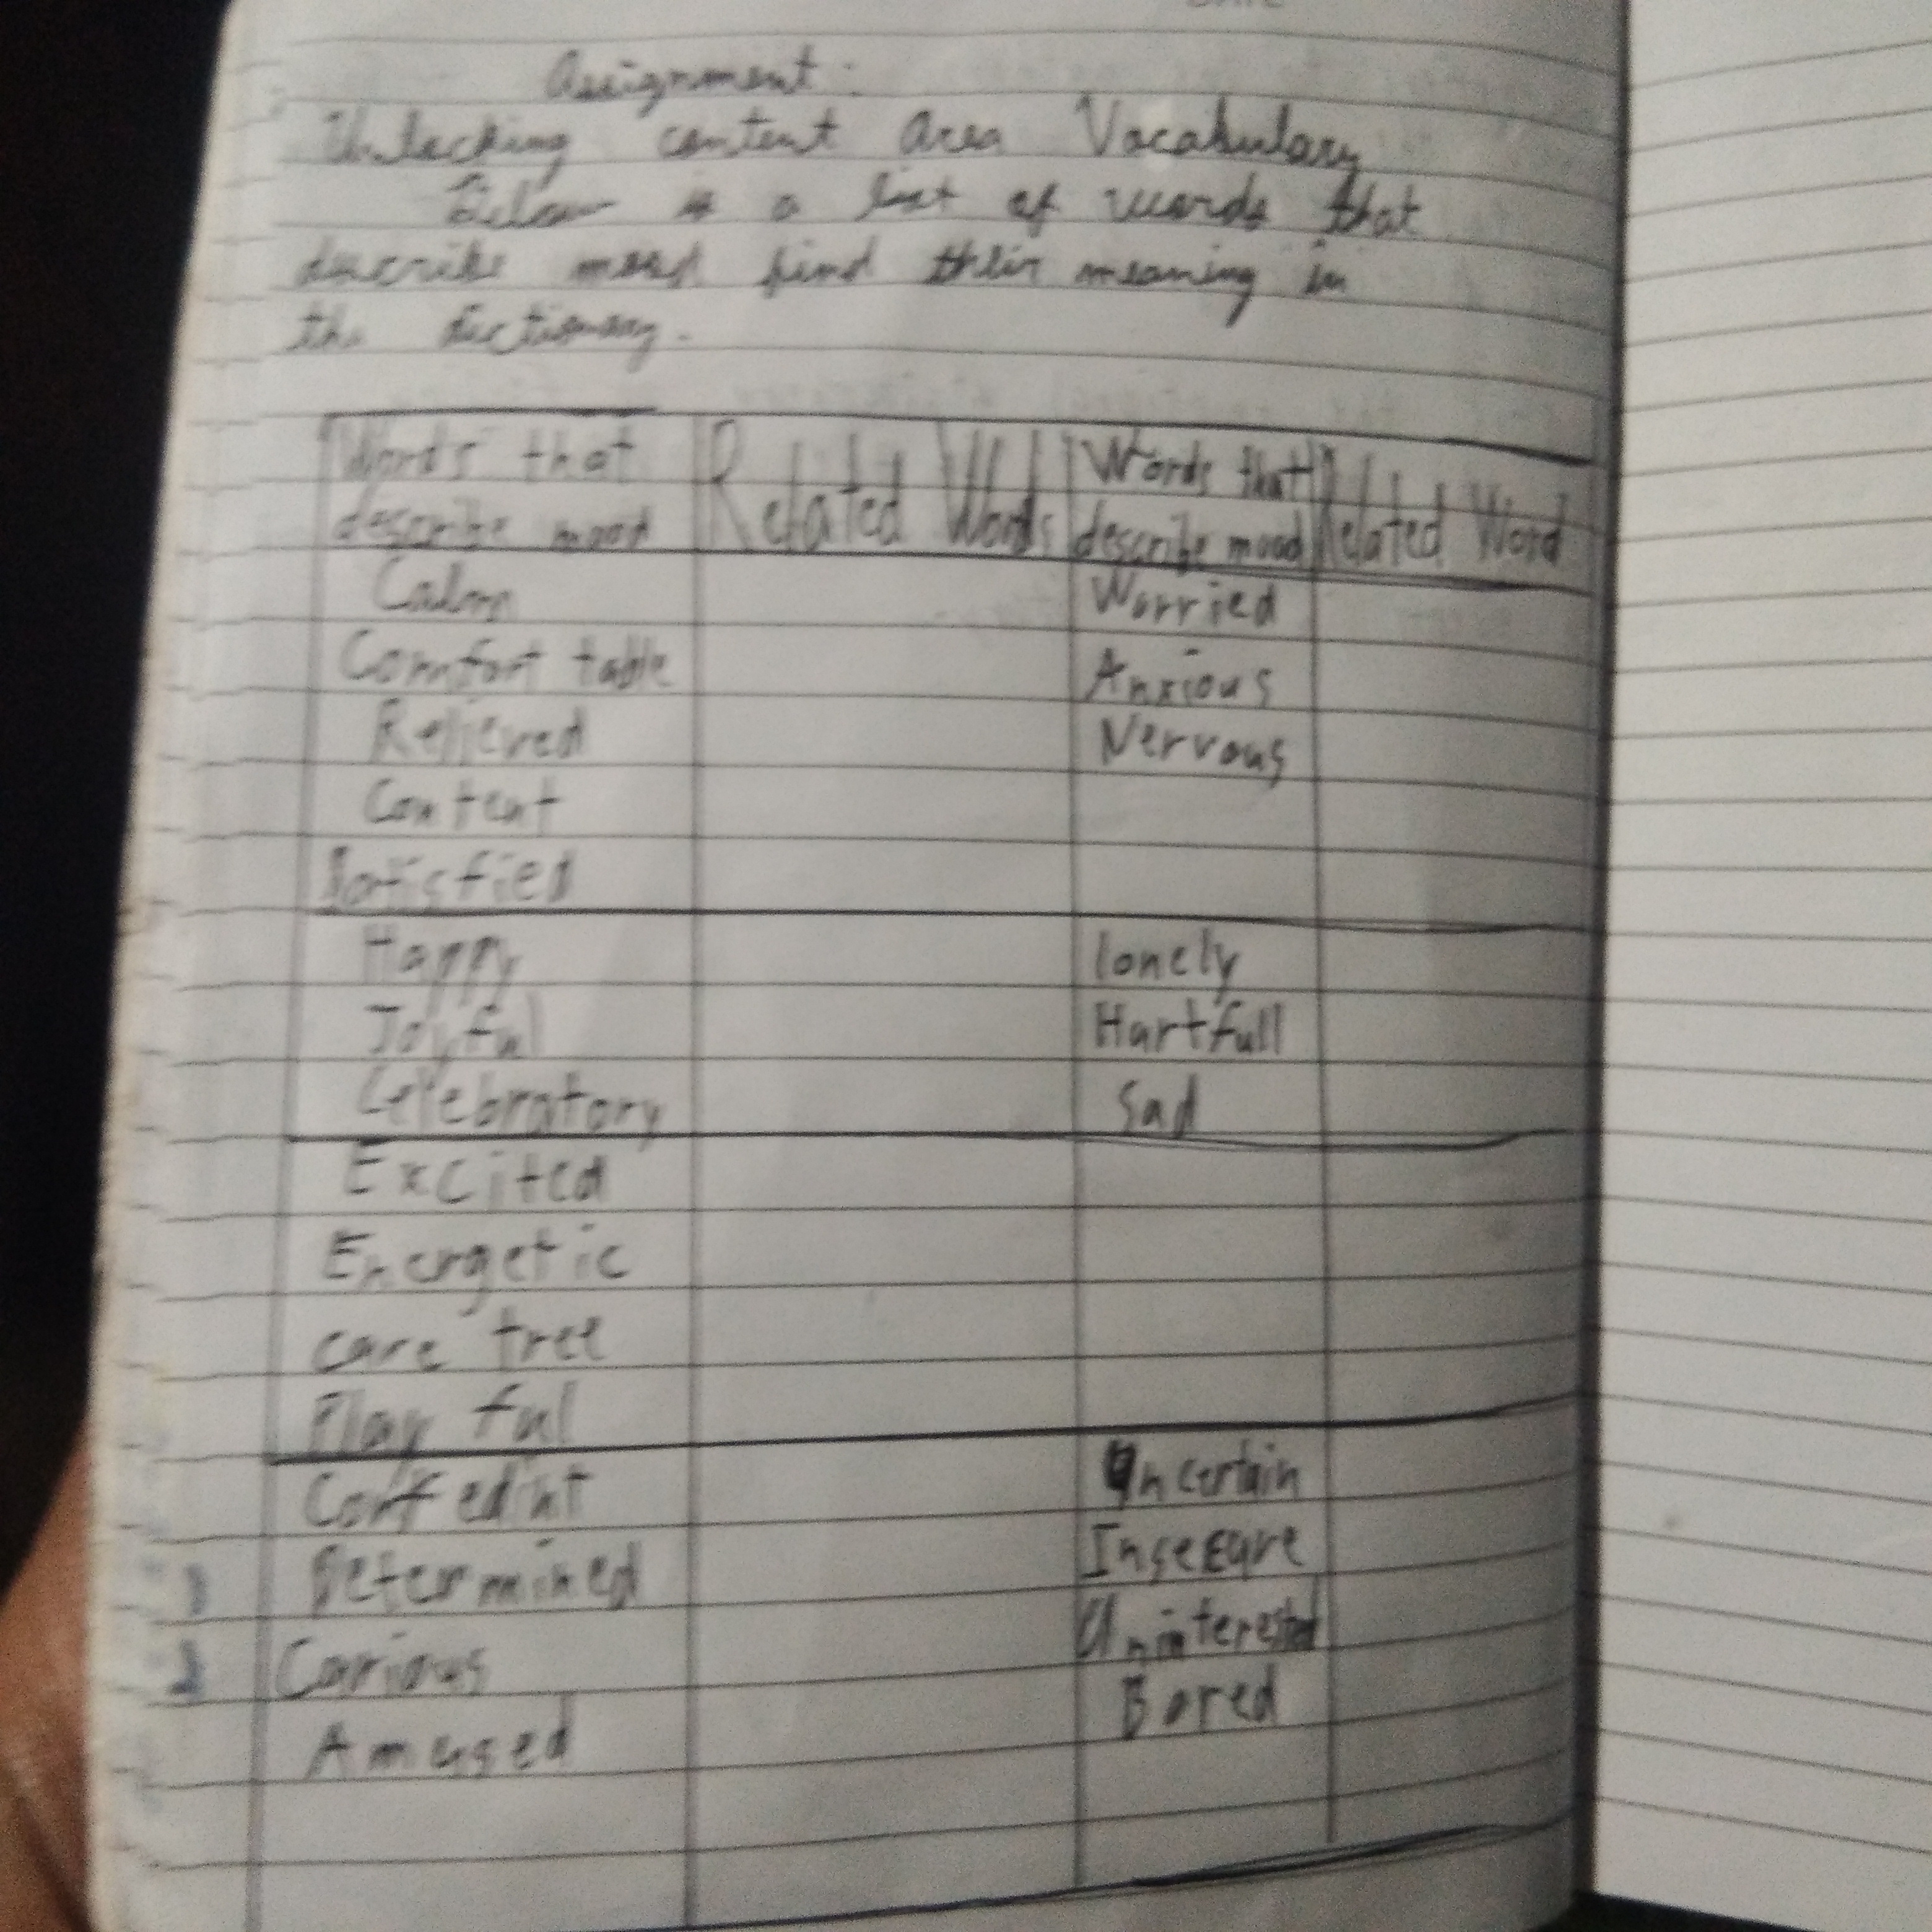 Assignment:
Unlocking content area Vocabulary
Below is a list of words that
describe mood find their meaning in
the dictionary.
Words that describe mood | Related Words | Words that describe mood | Related Word
Calm | Worried
Comfort table | Anxious
Relieved | Nervous
Content
Satisfied
Happy | lonely
Joyful | Hartfull
Celebratory | Sad
Excited
Energetic
care free
Play ful
Confedint | Uncertain
1 Determined | Insecure
2 Carious | Uninterested
Amused | Bored